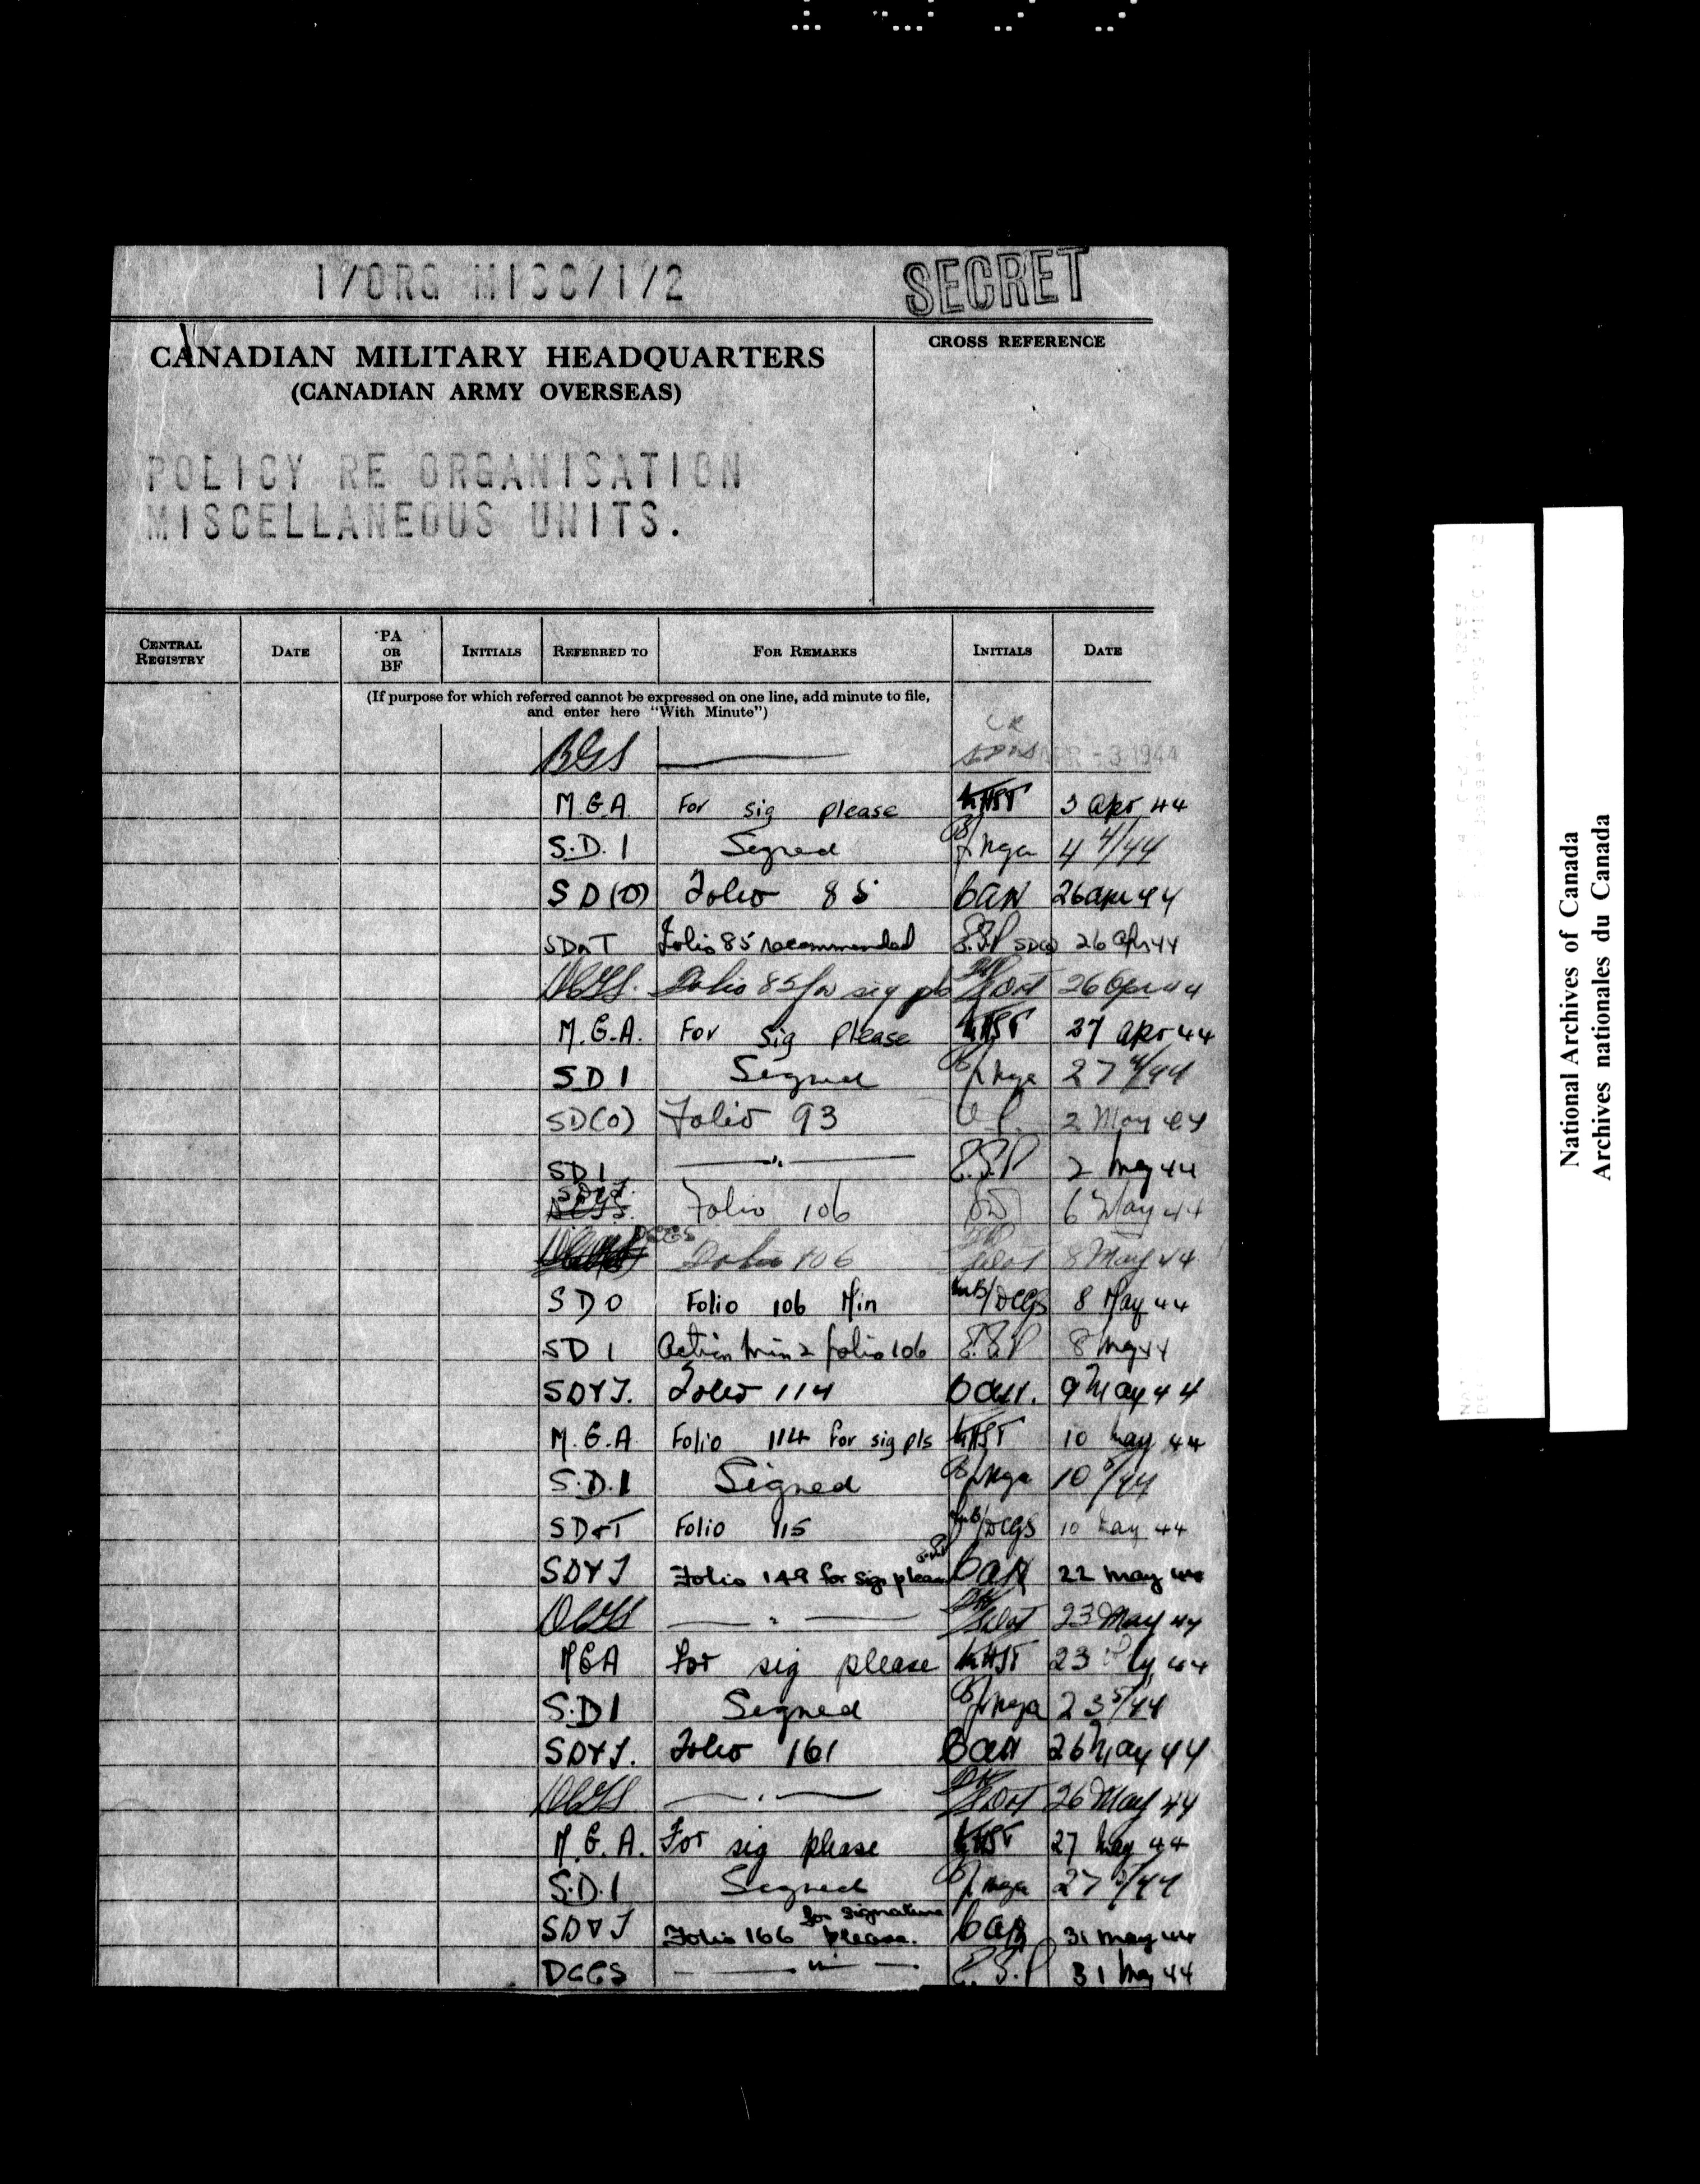 1/ORG MISC/1/2
SECRET
CANADIAN MILITARY HEADQUARTERS
(CANADIAN ARMY OVERSEAS)
CROSS REFERENCE
POLICY RE ORGANISATION
MISCELLANEOUS UNITS.
CENTRAL REGISTRY DATE PA OR BF INITIALS REFERRED TO FOR REMARKS INITIALS DATE
(If purpose for which referred cannot be expressed on one line, add minute to file,
and enter here "With Minute")
CR
BGS APR -3 1944
M.G.A. For sig please 3 Apr 44
S.D.1 Signed 4 4/44
SD(O) Folio 85 26 Apr 44
SD&T Folio 85 recommended E.S.P SD(O) 26 Apr 44
DCGS. Folio 85 for sig pls 26 Apr 44
M.G.A. For sig please 27 Apr 44
SD1 Signed 27 4/44
SD(O) Folio 93 2 May 44
SD1 — " — E.S.P 2 May 44
SD&T. Folio 106 6 May 44
DCGS Folio 106 8 May 44
SDO Folio 106 Min /DCGS 8 May 44
SD1 Action min 2 folio 106 E.S.P 8 May 44
SD&T. Folio 114 9 May 44
M.G.A Folio 114 for sig pls 10 May 44
S.D.1 Signed 10 5/44
SD&T Folio 115 /DCGS 10 May 44
SD&T Folio 149 for sign please 22 May 44
DCGS — " — 23 May 44
MGA for sig please 23 May 44
S.D1 Signed 23 5/44
SD&T. Folio 161 26 May 44
DCGS — " — 26 May 44
M.G.A. For sig please 27 May 44
S.D.1 Signed 27 5/44
SD&T Folio 166 for signature please. 31 May 44
DCGS — " — E.S.P 31 May 44
National Archives of Canada
Archives nationales du Canada